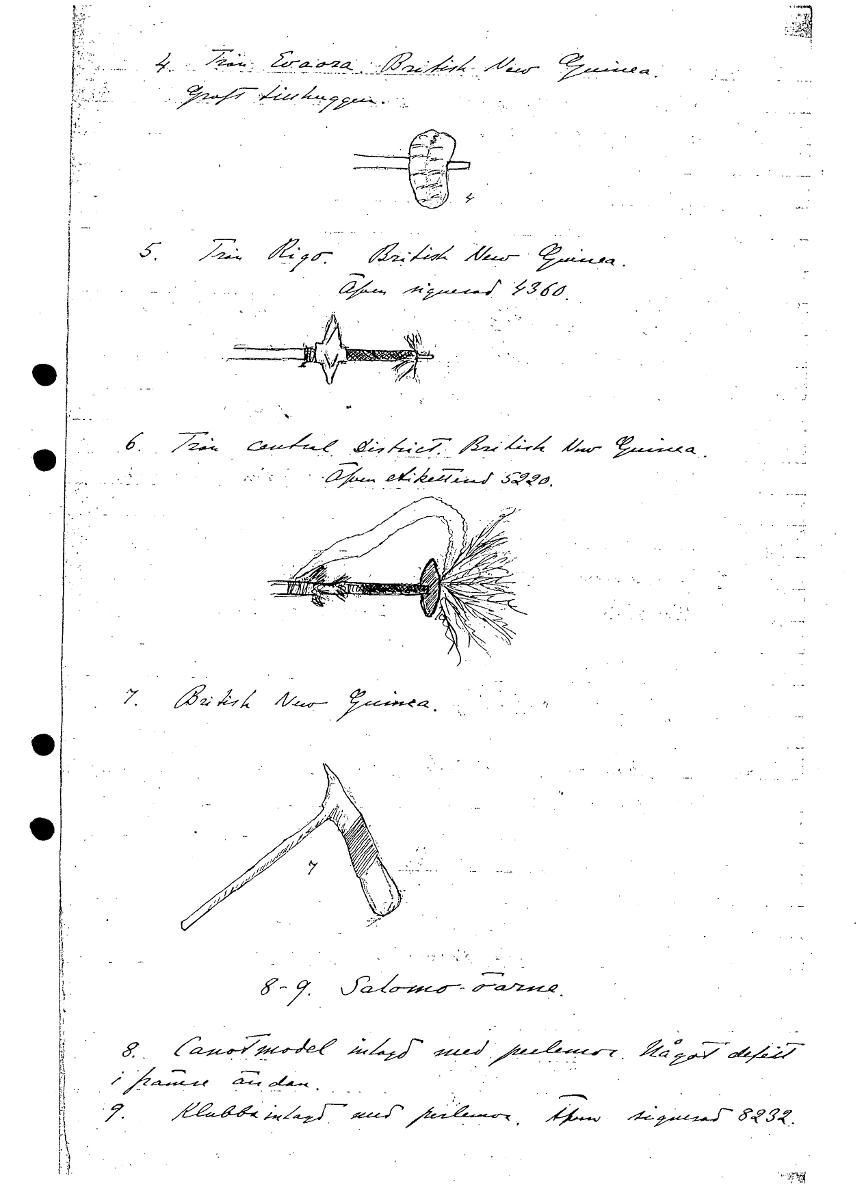 4. Från Evaora. British New Guinea.
Groft tillhuggen.
4
5. Från Rigo. British New Guinea.
Äfven signerad 4360.
6. Från central District. British New Guinea.
Äfven etiketterad 5220.
7. British New Guinea.
7
8-9. Salomo-öarne.
8. Canotmodel inlagd med perlemor. Något defekt
i främre ändan.
9. Klubba inlagd med perlemor. Äfven signerad 8232.